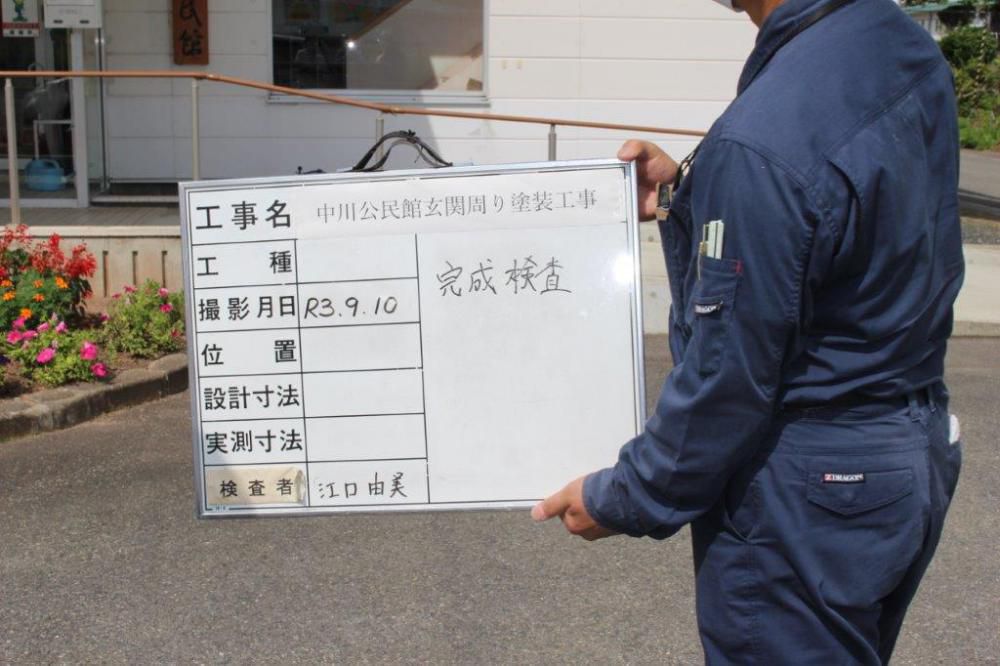 民館
工事名 中川公民館玄関周り塗装工事
工種
完成検査
撮影月日 R3.9.10
位置
設計寸法
実測寸法
検査者 江口由美
Z-DRAGON